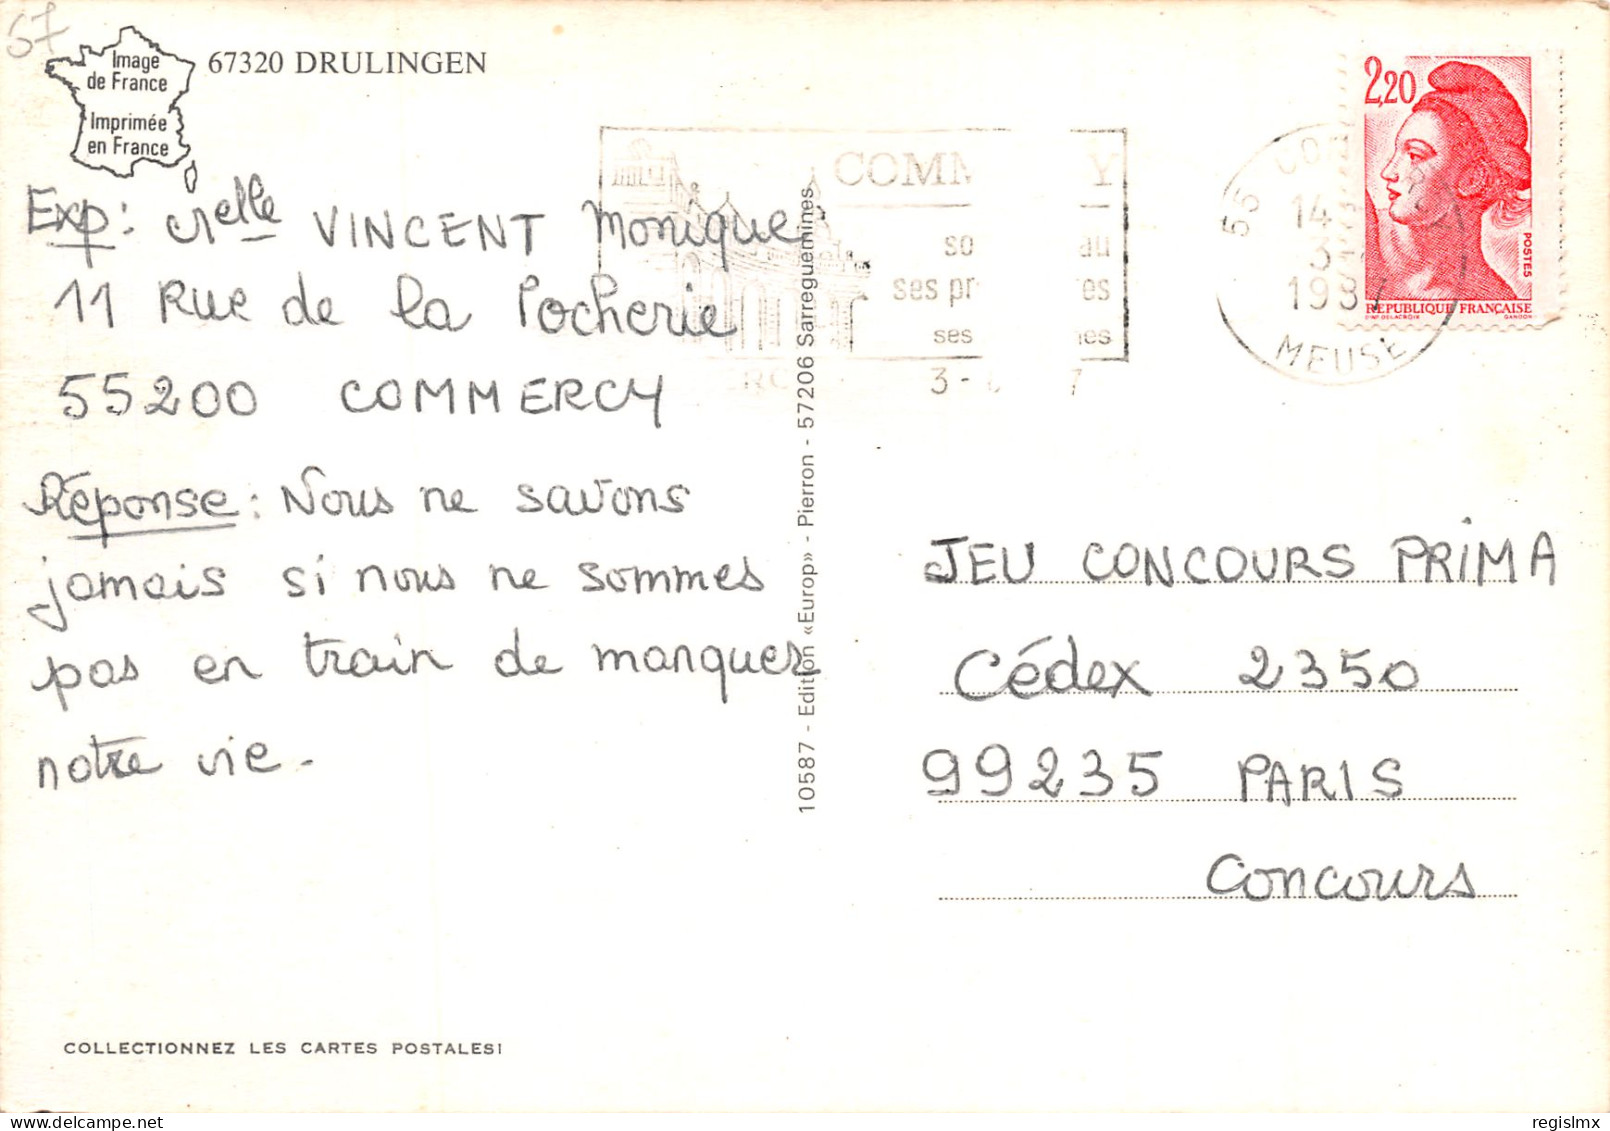 57
Image
de France
Imprimée
en France
67320 DRULINGEN
Exp: Melle VINCENT Monique
11 Rue de la Pocherie
55200 COMMERCY
Réponse: Nous ne savons
jamais si nous ne sommes
pas en train de manquer
notre vie.
COLLECTIONNEZ LES CARTES POSTALES!
10587 - Edition «Europ» - Pierron - 57206 Sarreguemines
COMM Y
so au
ses pr es
ses nes
3 -
55 CO
14
3
1987
MEUSE
2,20
POSTES
REPUBLIQUE FRANÇAISE
D'AP DELACROIX GANDON
JEU CONCOURS PRIMA
Cédex 2350
99235 PARIS
Concours
regislmx